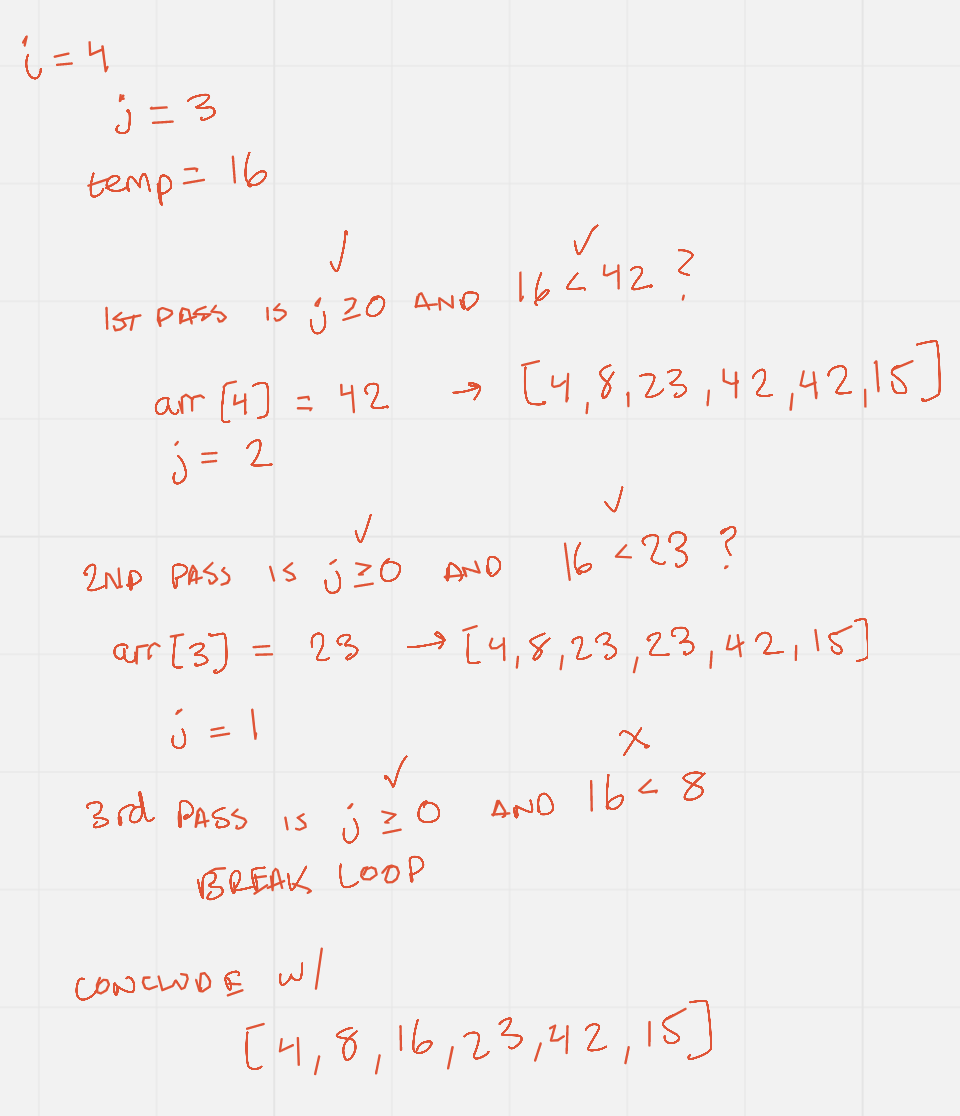 i = 4
j = 3
temp = 16
✓ ✓
1ST PASS IS j ≥ 0 AND 16 < 42 ?
arr [4] = 42 → [4, 8, 23, 42, 42, 15]
j = 2
✓ ✓
2ND PASS IS j ≥ 0 AND 16 < 23 ?
arr [3] = 23 → [4, 8, 23, 23, 42, 15]
j = 1
✓ X
3rd PASS IS j ≥ 0 AND 16 < 8
BREAK LOOP
CONCLUDE w/
[4, 8, 16, 23, 42, 15]